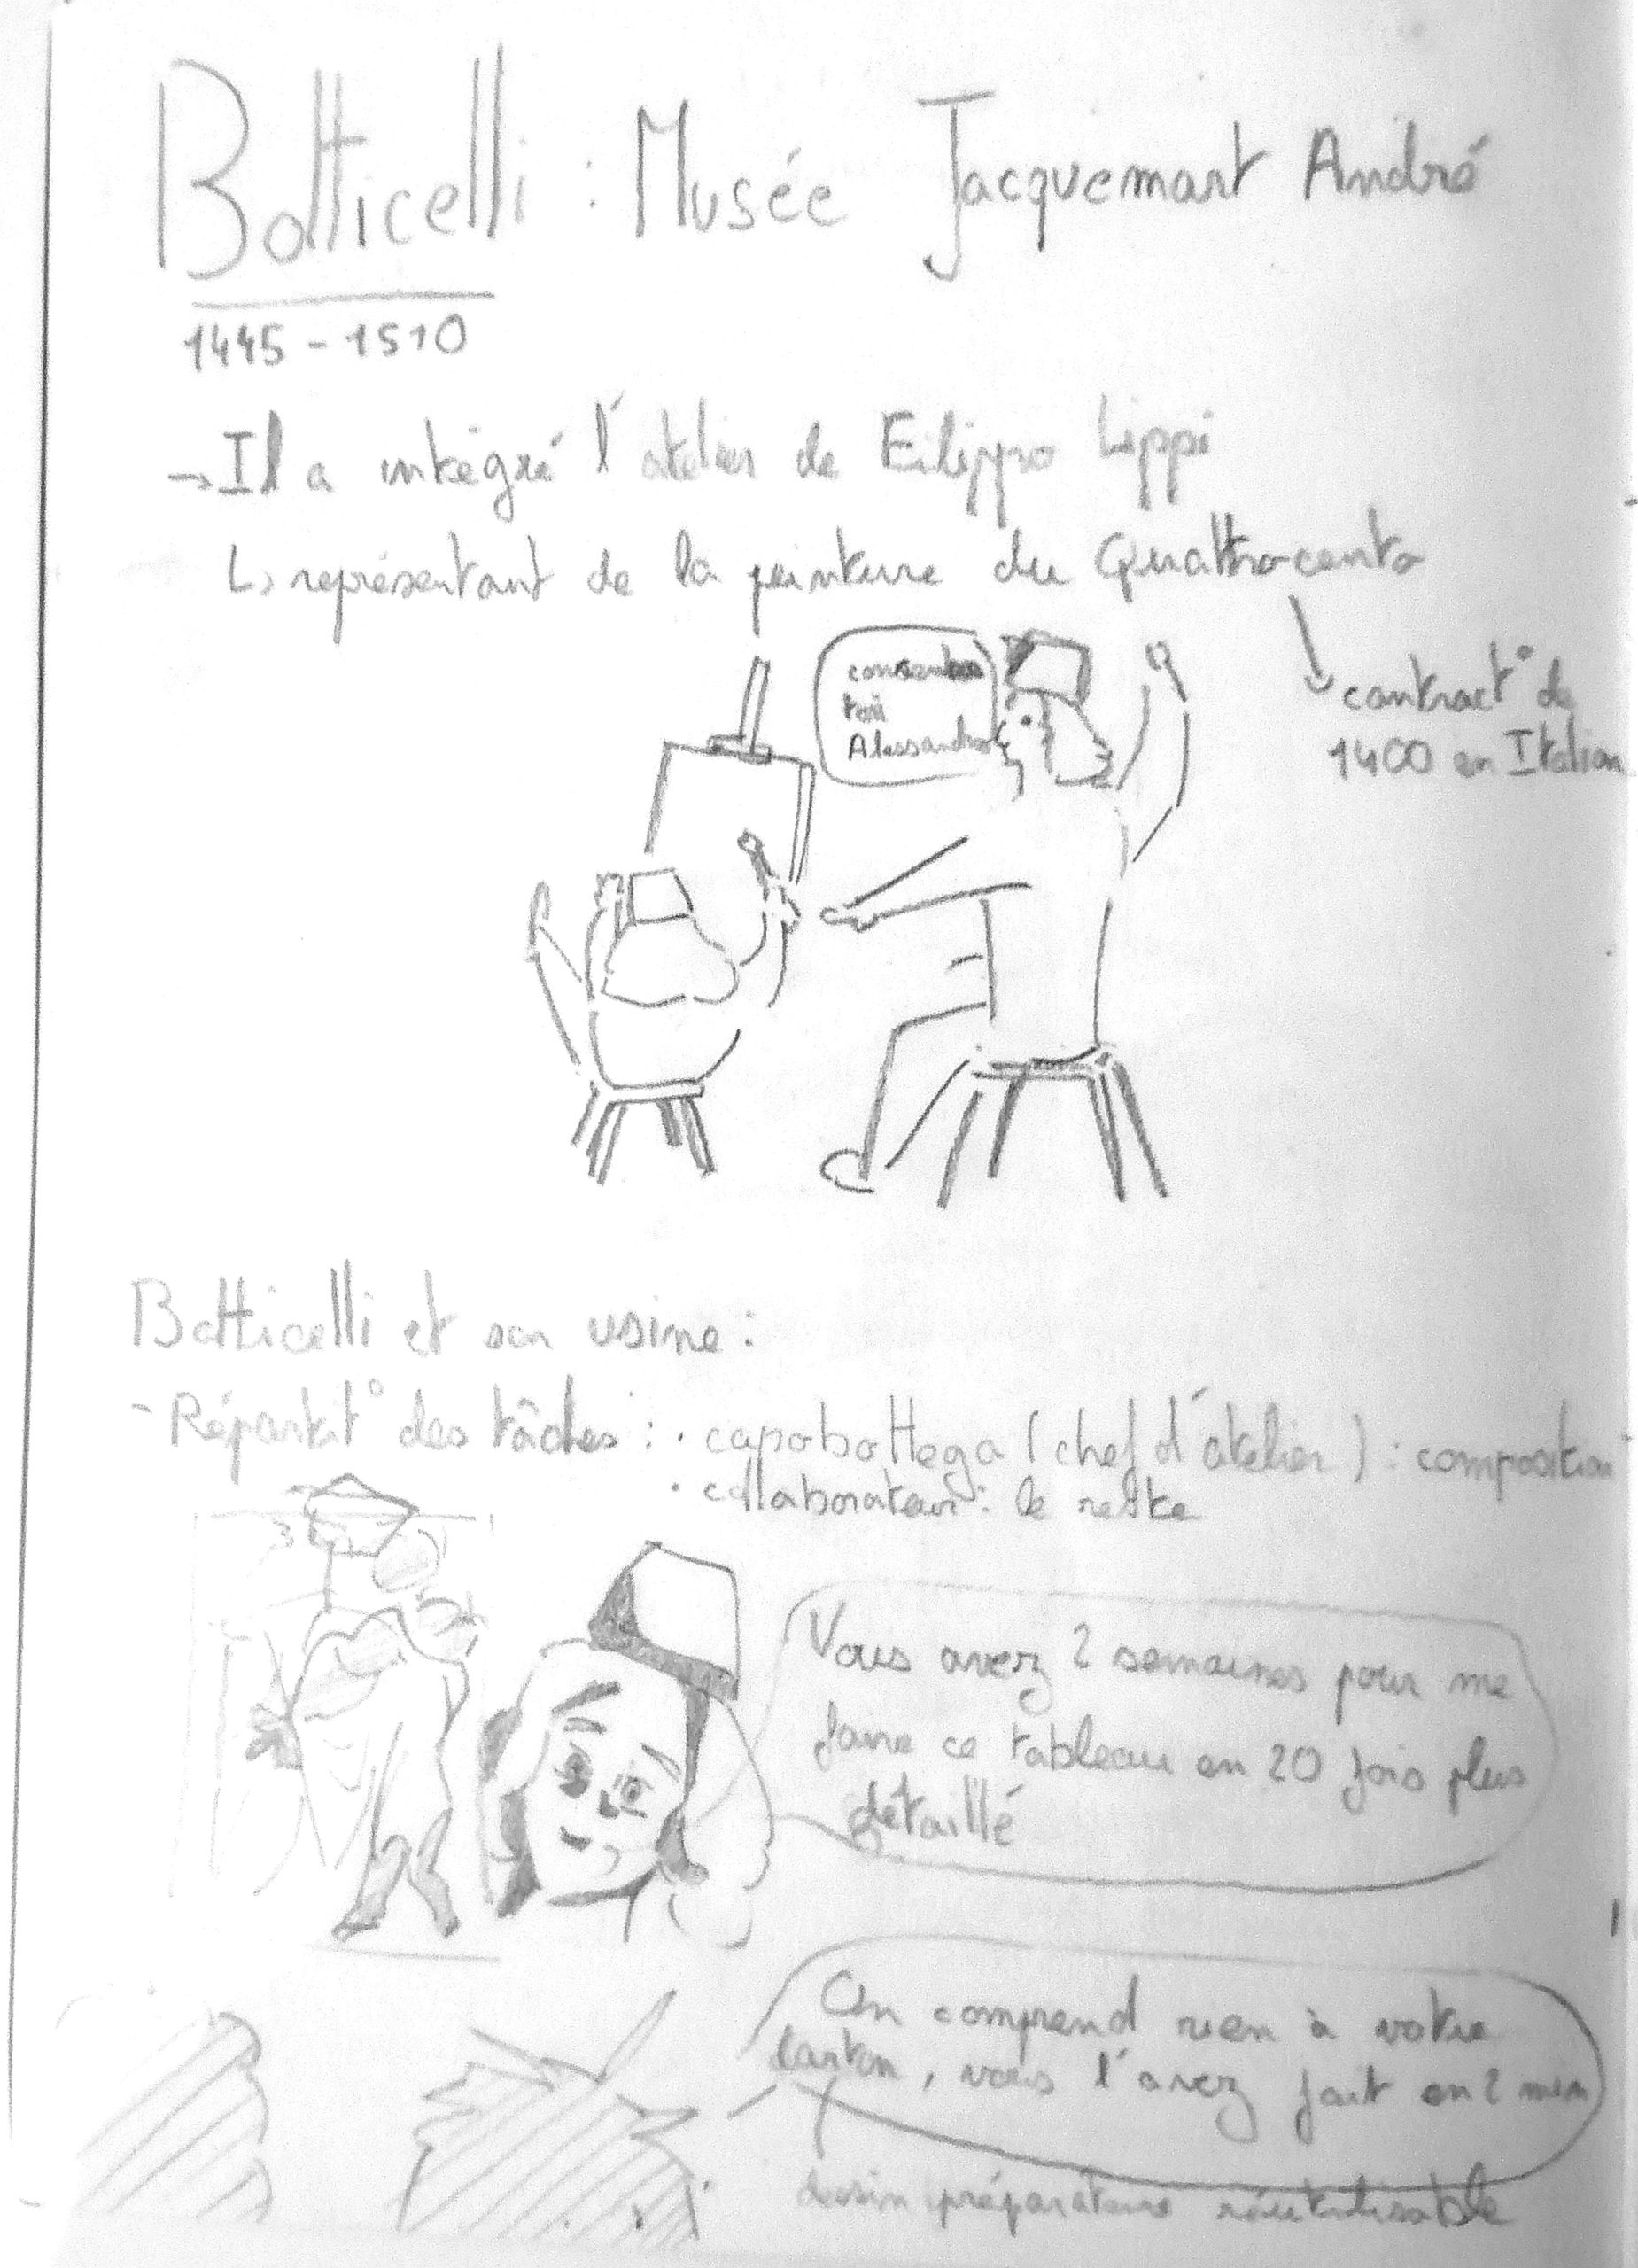 Botticelli : Musée Jacquemart André
1445 - 1510
→ Il a intégré l'atelier de Filippo Lippi
↳ représentant de la peinture du Quattrocento
contract° de
1400 en Italien
concentres
toi
Alessandro
Botticelli et son usine :
- Répartit° des tâches : · capobottega (chef d'atelier) : composition
· collaborateur : le reste
Vous avez 2 semaines pour me
faire ce tableau en 20 fois plus
détaillé
On comprend rien à votre
carton, vous l'avez fait en 2 min
dessin préparatoire réutilisable